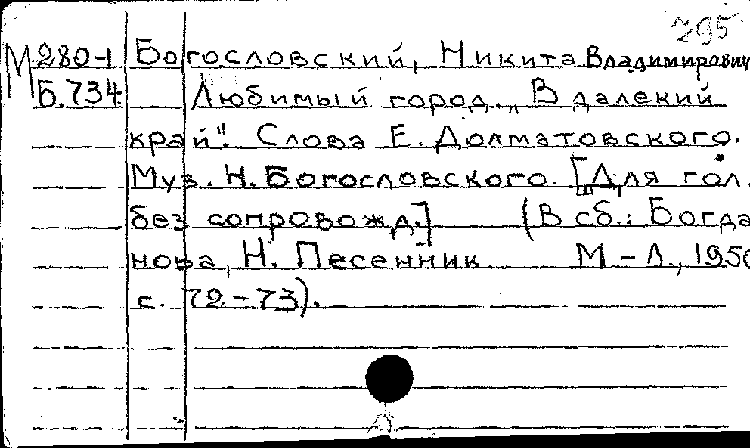 795
М280-1 Богословский, Никита Владимирович
Б.734 Любимый город. „В далекий
край". Слова Е. Долматовского.
Муз. Н. Богословского. [Для гол.
без сопровожд.] (В сб.: Богда
нова, Н. Песенник М-Л., 195
с. 72-73).